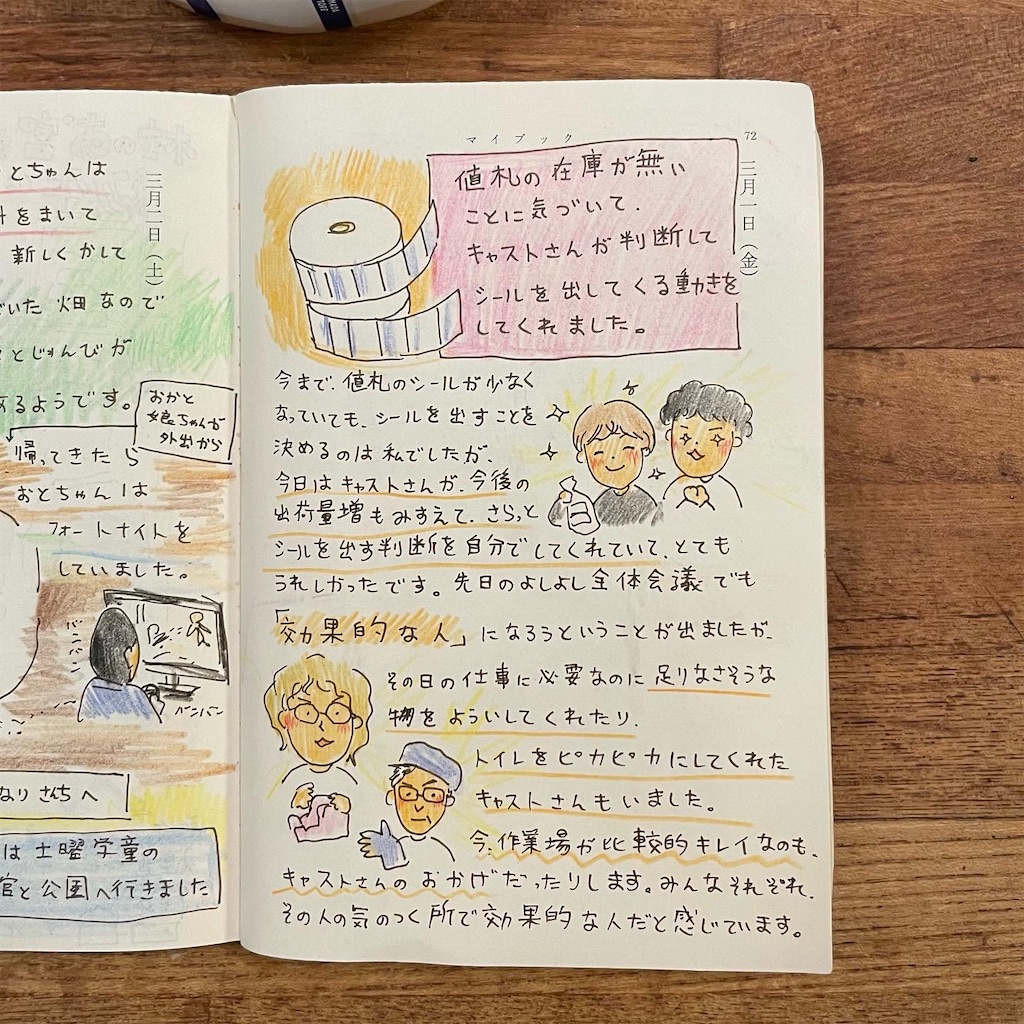 マイブック
72
三月一日（金）
値札の在庫が無い
ことに気づいて、
キャストさんが判断して
シールを出してくる動きを
してくれました。
今まで、値札のシールが少なく
なっていても、シールを出すことを
決めるのは私でしたが、
今日はキャストさんが、今後の
出荷量増もみすえて、さらっと
シールを出す判断を自分でしてくれていて、とても
うれしかったです。先日のよしよし全体会議でも
「効果的な人」になろうということが出ましたが、
その日の仕事に必要なのに足りなさそうな
物をよういしてくれたり、
トイレをピカピカにしてくれた
キャストさんもいました。
今、作業場が比較的キレイなのも、
キャストさんのおかげだったりします。みんなそれぞれ、
その人の気のつく所で効果的な人だと感じています。
三月二日（土）
とちゃんは
をまいて
新しくかして
いた畑なので
とじゅんびが
あるようです。
おかと
娘ちゃんが
外出から
帰ってきたら
おとちゃんは
フォートナイトを
していました。
バンバン
バンバン
なりさんちへ
は土曜学童の
と公園へ行きました